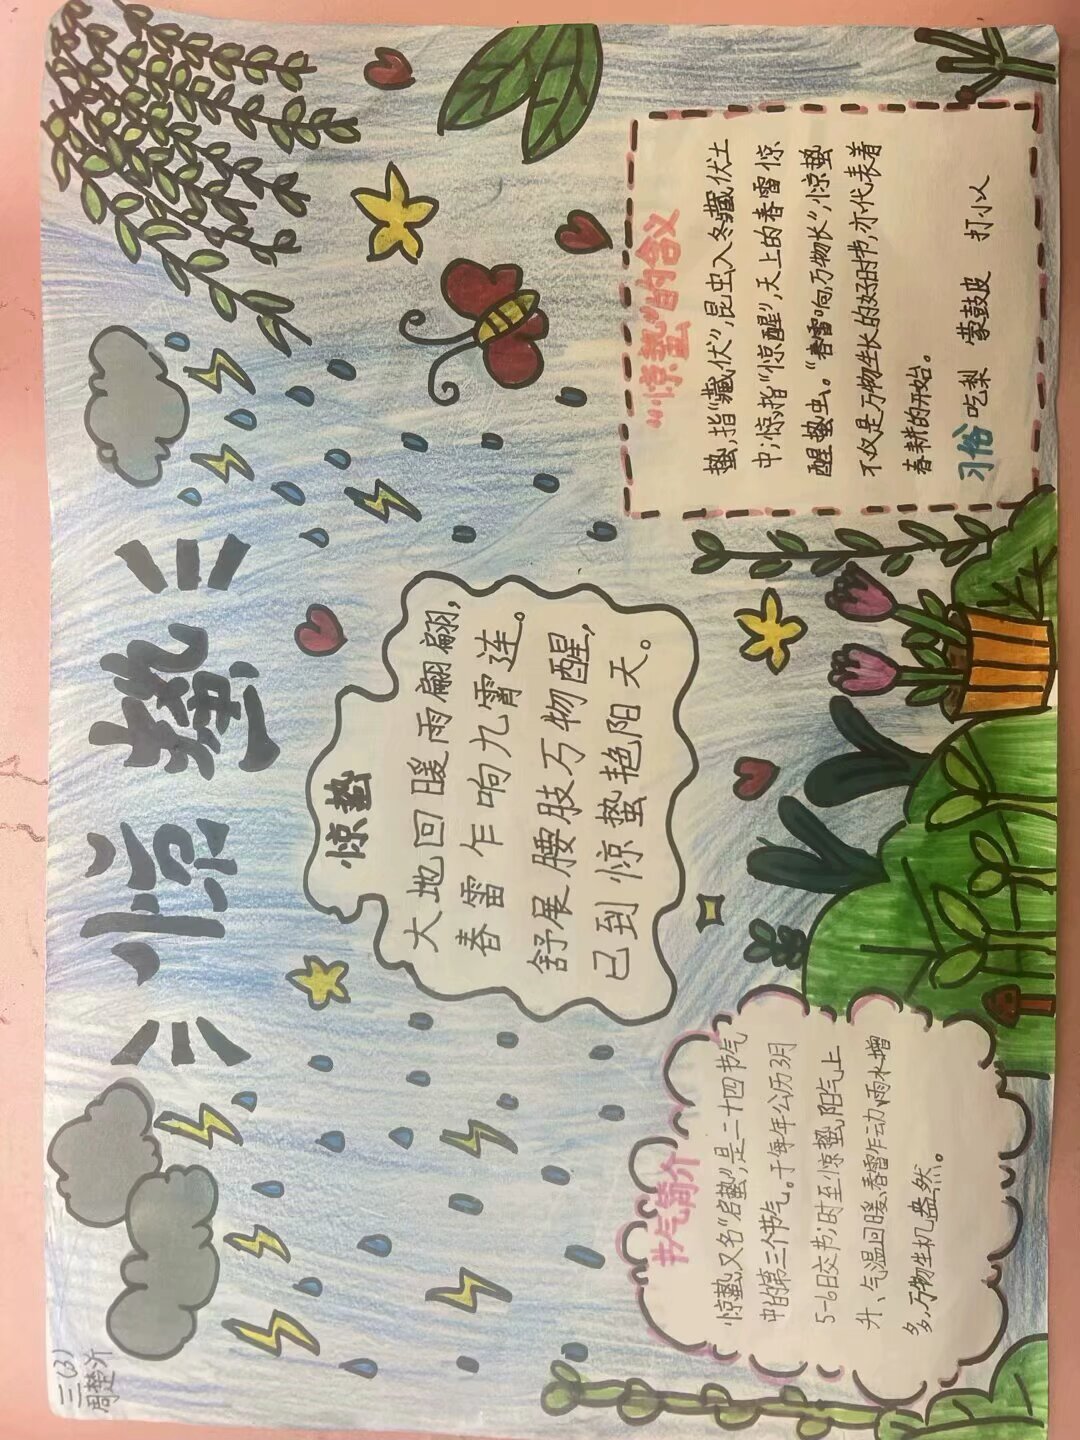 三(3)
周楚汐
惊蛰
惊蛰
大地回暖雨翩翩,
春雷乍响九霄连。
舒展腰肢万物醒,
已到惊蛰艳阳天。
节气简介
惊蛰,又名“启蛰”,是二十四节气
中的第三个节气。于每年公历3月
5-6日交节;时至惊蛰,阳气上
升、气温回暖、春雷乍动、雨水增
多,万物生机盎然。
“惊蛰”的含义
蛰,指“藏伏”,昆虫入冬藏伏土
中;惊,指“惊醒”,天上的春雷惊
醒蛰虫。“春雷响,万物长”,惊蛰
不仅是万物生长的好时节,亦代表着
春耕的开始。
习俗 吃梨 蒙鼓皮 打小人